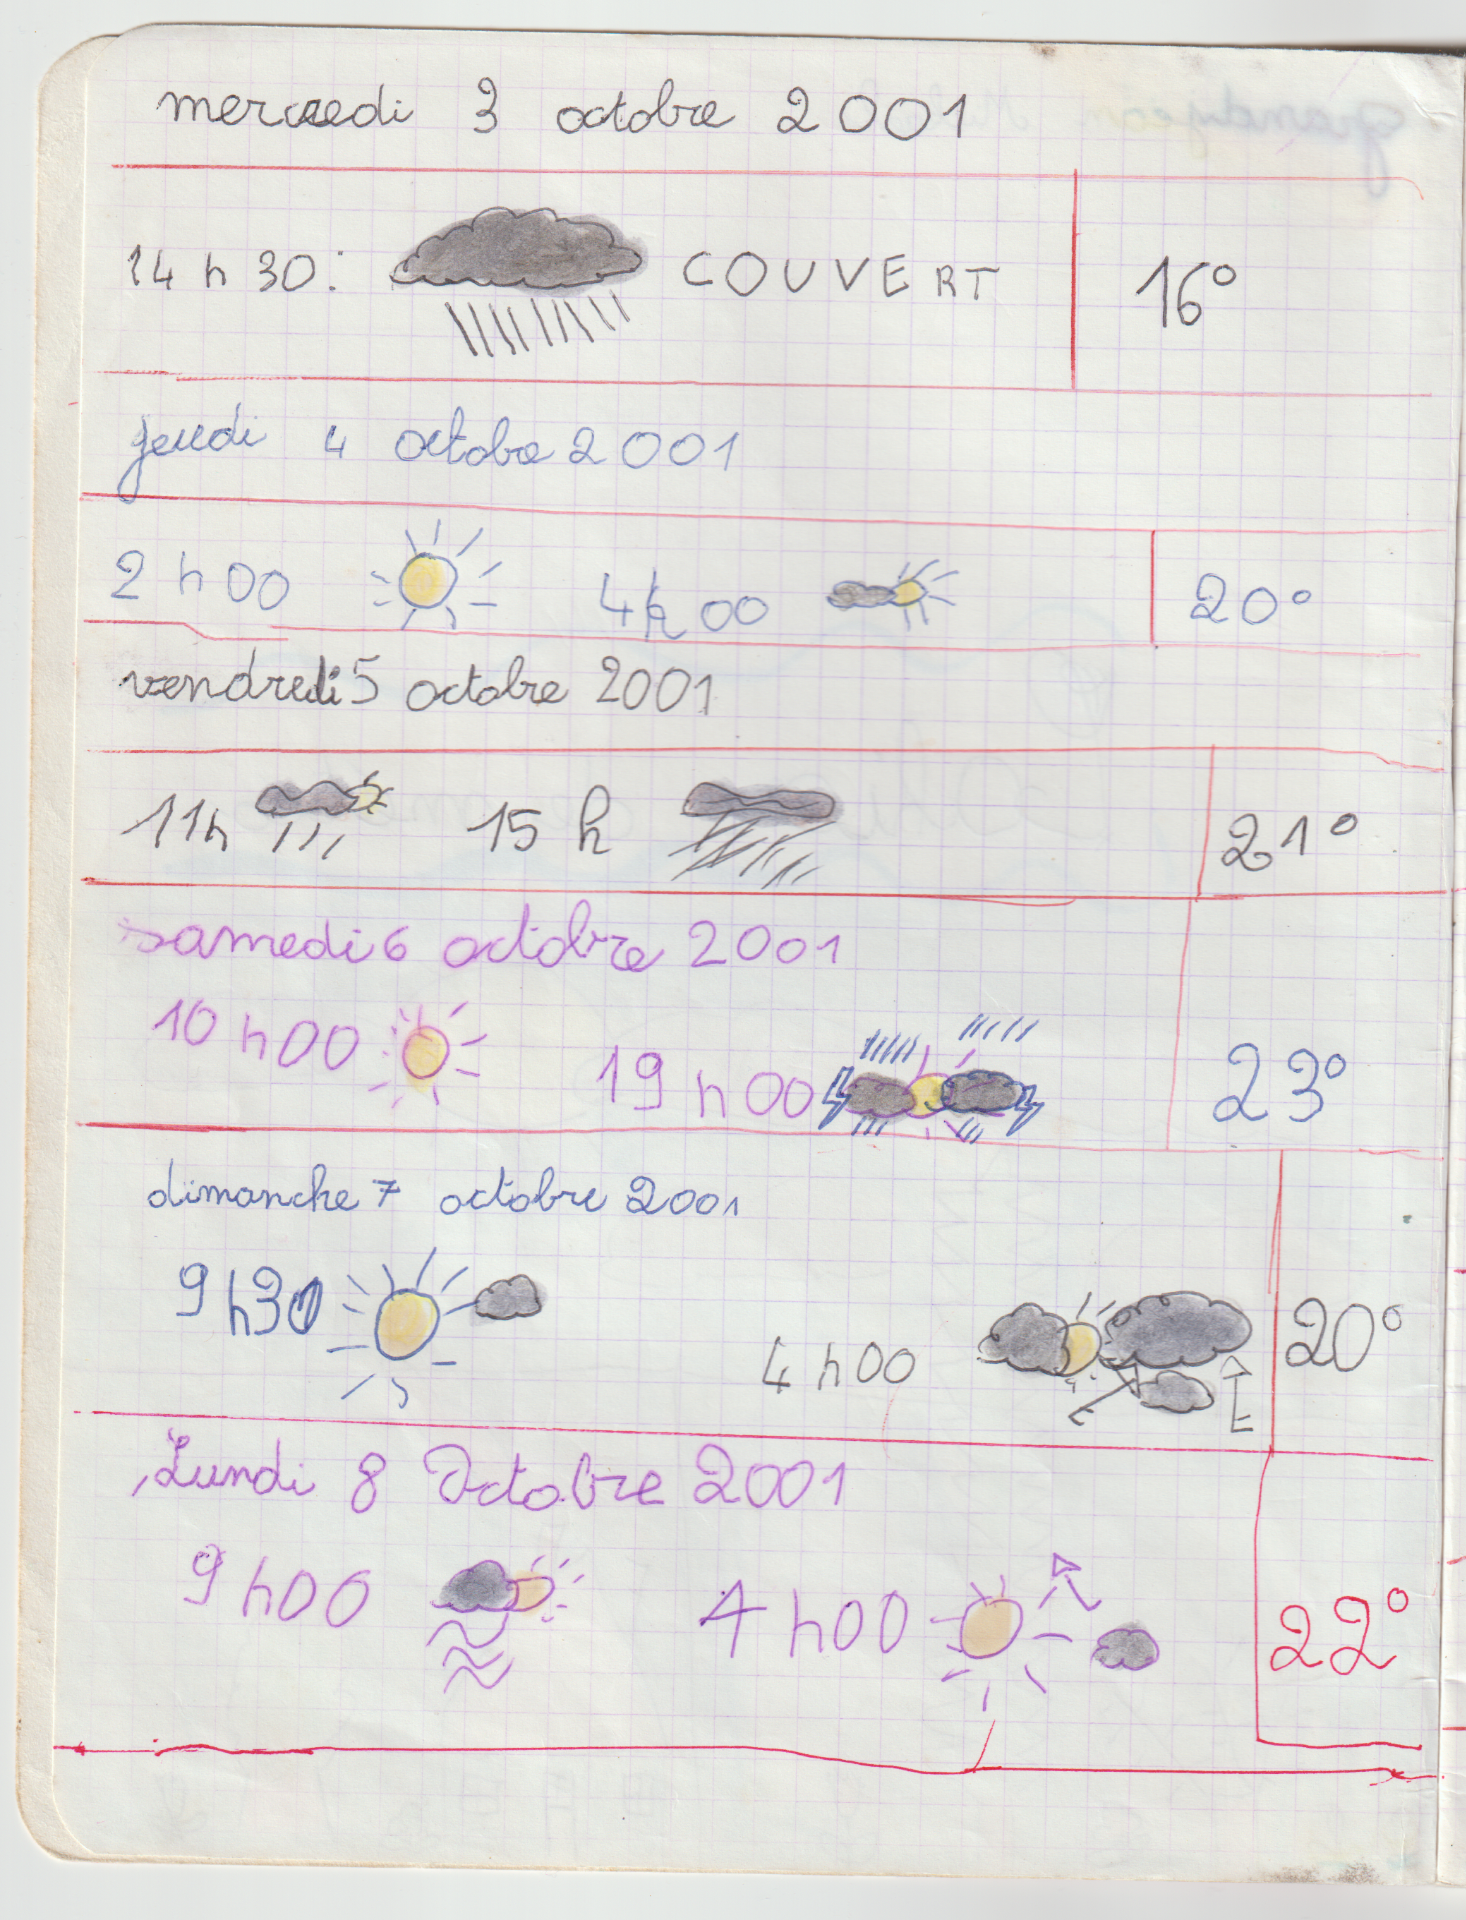 mercredi 3 octobre 2001
14 h 30: COUVERT 16°
jeudi 4 octobre 2001
2 h 00 4h 00 20°
vendredi 5 octobre 2001
11h 15 h 21°
samedi 6 octobre 2001
10 h 00 19 h 00 23°
dimanche 7 octobre 2001
9 h30 4 h 00 20°
E E
Lundi 8 Octobre 2001
9 h00 4 h00 22°